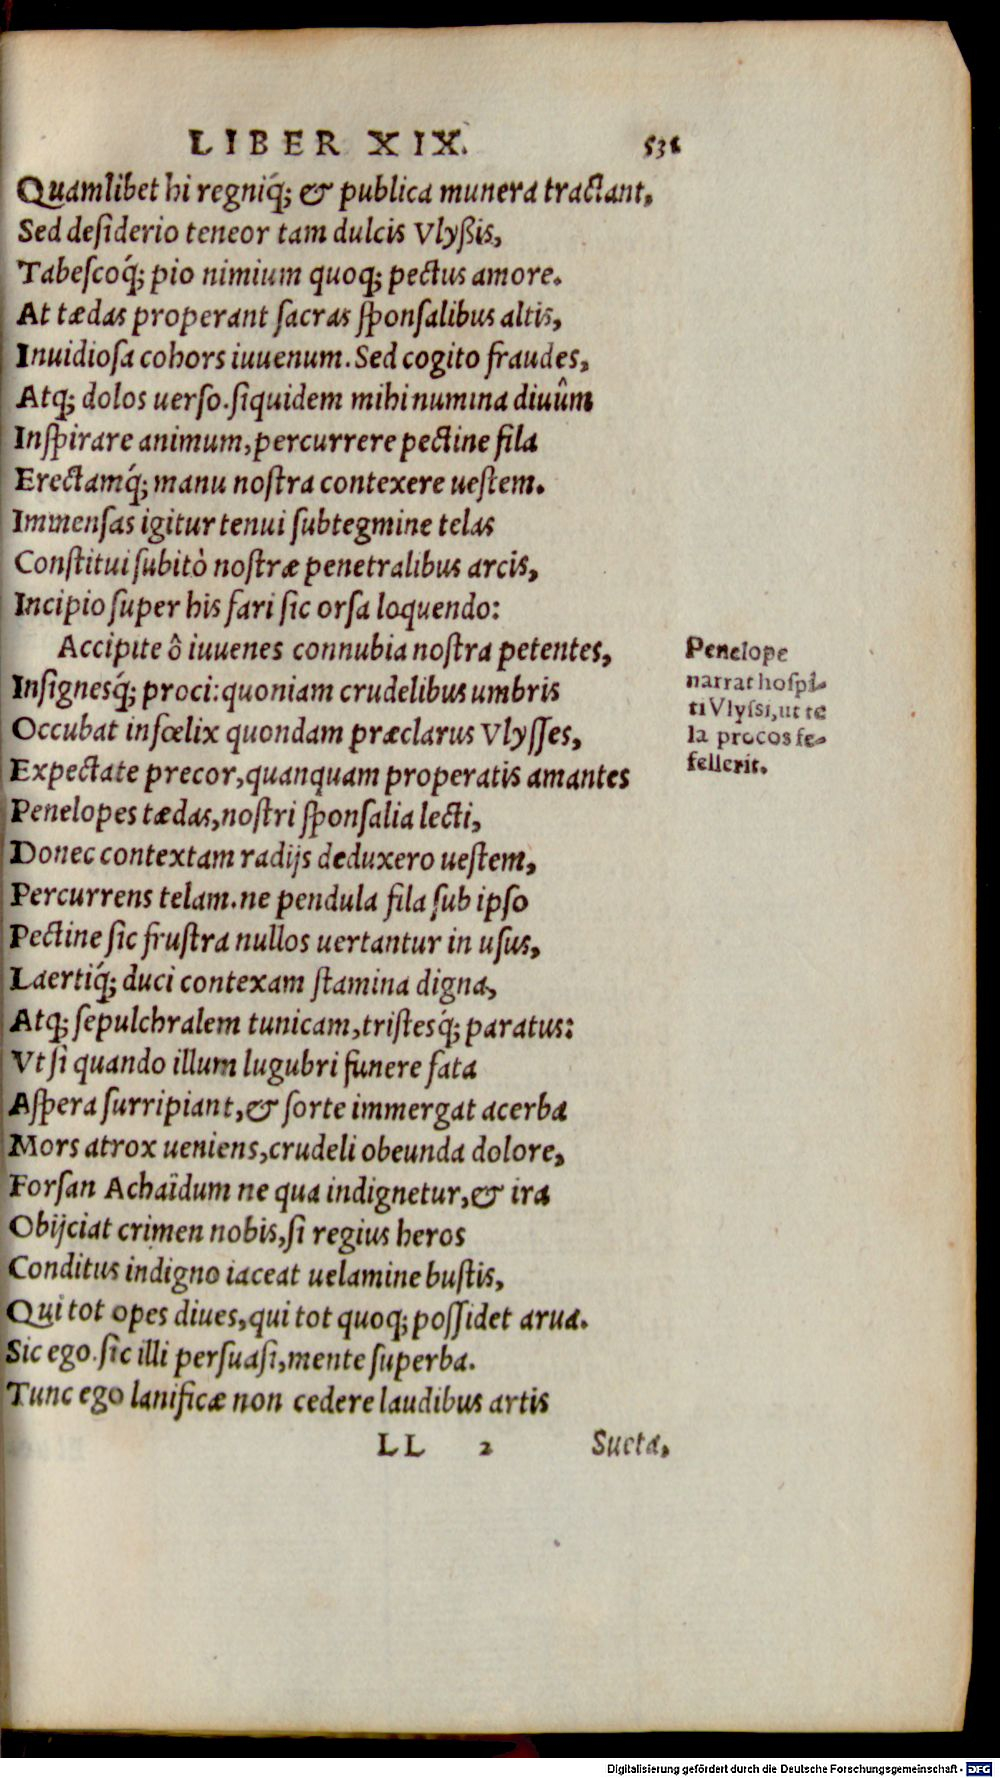 LIBER XIX. 531
Quamlibet hi regniq́; & publica munera tractant,
Sed desiderio teneor tam dulcis Vlyßis,
Tabescoq́; pio nimium quoq; pectus amore.
At tædas properant sacras sponsalibus altis,
Inuidiosa cohors iuuenum. Sed cogito fraudes,
Atq; dolos uerso. siquidem mihi numina diuûm
Inspirare animum, percurrere pectine fila
Erectamq́; manu nostra contexere uestem.
Immensas igitur tenui subtegmine telas
Constitui subitò nostræ penetralibus arcis,
Incipio super his fari sic orsa loquendo:
Accipite ô iuuenes connubia nostra petentes,
Insignesq́; proci: quoniam crudelibus umbris
Occubat infœlix quondam præclarus Vlysses,
Expectate precor, quanquam properatis amantes
Penelopes tædas, nostri sponsalia lecti,
Donec contextam radijs deduxero uestem,
Percurrens telam. ne pendula fila sub ipso
Pectine sic frustra nullos uertantur in usus,
Laertiq́; duci contexam stamina digna,
Atq; sepulchralem tunicam, tristesq́; paratus:
Vt si quando illum lugubri funere fata
Aspera surripiant, & sorte immergat acerba
Mors atrox ueniens, crudeli obeunda dolore,
Forsan Achaïdum ne qua indignetur, & ira
Obijciat crimen nobis, si regius heros
Conditus indigno iaceat uelamine bustis,
Qui tot opes diues, qui tot quoq; possidet arua.
Sic ego. sic illi persuasi, mente superba.
Tunc ego lanificæ non cedere laudibus artis
LL 2 Sueta,
Penelope
narrat hospi-
ti Vlyssi, ut te
la procos fe-
fellerit.
Digitalisierung gefördert durch die Deutsche Forschungsgemeinschaft - DFG